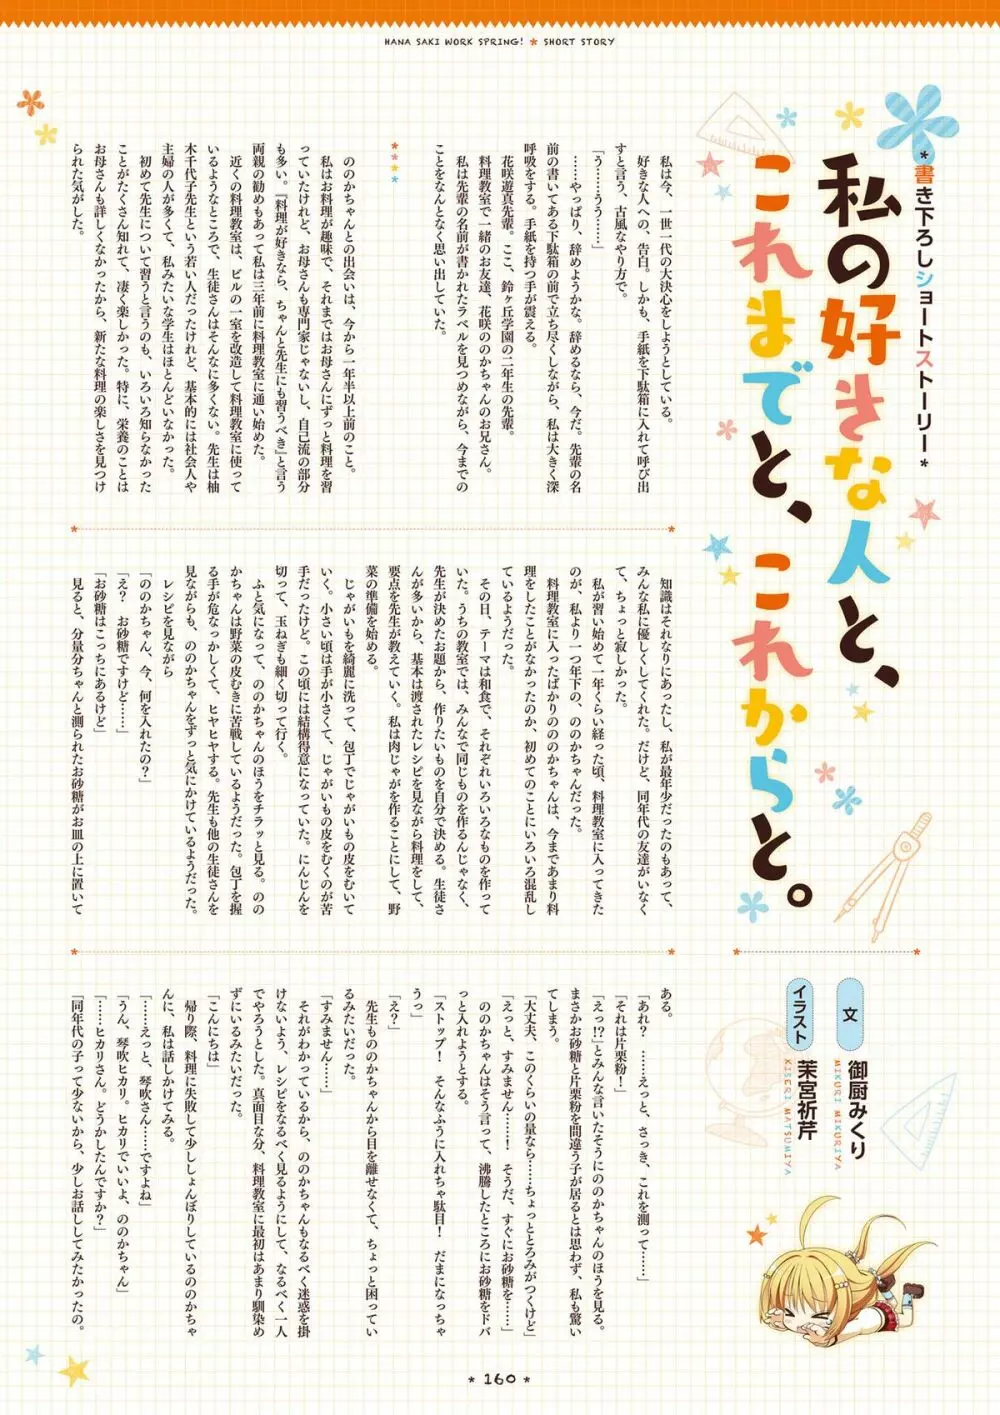 HANA SAKI WORK SPRING! * SHORT STORY
*書き下ろしショートストーリー*
私の好きな人と、
これまでと、これからと。
文
御厨みくり
MIKURI MIKURIYA
イラスト
茉宮祈芹
KISERI MATSUMIYA
私は今、一世一代の大決心をしようとしている。
好きな人への、告白。しかも、手紙を下駄箱に入れて呼び出
すと言う、古風なやり方で。
「う………うう……」
……やっぱり、辞めようかな。辞めるなら、今だ。先輩の名
前の書いてある下駄箱の前で立ち尽くしながら、私は大きく深
呼吸をする。手紙を持つ手が震える。
花咲遊真先輩。ここ、鈴ヶ丘学園の二年生の先輩。
料理教室で一緒のお友達、花咲ののかちゃんのお兄さん。
私は先輩の名前が書かれたラベルを見つめながら、今までの
ことをなんとなく思い出していた。
****
ののかちゃんとの出会いは、今から一年半以上前のこと。
私はお料理が趣味で、それまではお母さんにずっと料理を習
っていたけれど、お母さんも専門家じゃないし、自己流の部分
も多い。『料理が好きなら、ちゃんと先生にも習うべき』と言う
両親の勧めもあって私は三年前に料理教室に通い始めた。
近くの料理教室は、ビルの一室を改造して料理教室に使って
いるようなところで、生徒さんはそんなに多くない。先生は柚
木千代子先生という若い人だったけれど、基本的には社会人や
主婦の人が多くて、私みたいな学生はほとんどいなかった。
初めて先生について習うと言うのも、いろいろ知らなかった
ことがたくさん知れて、凄く楽しかった。特に、栄養のことは
お母さんも詳しくなかったから、新たな料理の楽しさを見つけ
られた気がした。
知識はそれなりにあったし、私が最年少だったのもあって、
みんな私に優しくしてくれた。だけど、同年代の友達がいなく
て、ちょっと寂しかった。
私が習い始めて一年くらい経った頃、料理教室に入ってきた
のが、私より一つ年下の、ののかちゃんだった。
料理教室に入ったばかりのののかちゃんは、今まであまり料
理をしたことがなかったのか、初めてのことにいろいろ混乱し
ているようだった。
その日、テーマは和食で、それぞれいろいろなものを作って
いた。うちの教室では、みんなで同じものを作るんじゃなく、
先生が決めたお題から、作りたいものを自分で決める。生徒さ
んが多いから、基本は渡されたレシピを見ながら料理をして、
要点を先生が教えていく。私は肉じゃがを作ることにして、野
菜の準備を始める。
じゃがいもを綺麗に洗って、包丁でじゃがいもの皮をむいて
いく。小さい頃は手が小さくて、じゃがいもの皮をむくのが苦
手だったけど。この頃には結構得意になっていた。にんじんを
切って、玉ねぎも細く切って行く。
ふと気になって、ののかちゃんのほうをチラッと見る。のの
かちゃんは野菜の皮むきに苦戦しているようだった。包丁を握
る手が危なっかしくて、ヒヤヒヤする。先生も他の生徒さんを
見ながらも、ののかちゃんをずっと気にかけているようだった。
レシピを見ながら
「ののかちゃん、今、何を入れたの？」
「え？　お砂糖ですけど……」
「お砂糖はこっちにあるけど」
見ると、分量分ちゃんと測られたお砂糖がお皿の上に置いて
ある。
「あれ？　……えっと、さっき、これを測って……」
「それは片栗粉！」
「えっ!?」とみんな言いたそうにののかちゃんのほうを見る。
まさかお砂糖と片栗粉を間違う子が居るとは思わず、私も驚い
てしまう。
「大丈夫、このくらいの量なら……ちょっととろみがつくけど」
「えっと、すみません……！　そうだ、すぐにお砂糖を……」
ののかちゃんはそう言って、沸騰したところにお砂糖をドバ
っと入れようとする。
「ストップ！　そんなふうに入れちゃ駄目！　だまになっちゃ
うっ」
「え？」
先生もののかちゃんから目を離せなくて、ちょっと困ってい
るみたいだった。
「すみません……」
それがわかっているから、ののかちゃんもなるべく迷惑を掛
けないよう、レシピをなるべく見るようにして、なるべく一人
でやろうとした。真面目な分、料理教室に最初はあまり馴染め
ずにいるみたいだった。
「こんにちは」
帰り際、料理に失敗して少ししょんぼりしているののかちゃ
んに、私は話しかけてみる。
「……えっと、琴吹さん……ですよね」
「うん、琴吹ヒカリ。ヒカリでいいよ、ののかちゃん」
「……ヒカリさん。どうかしたんですか？」
「同年代の子って少ないから、少しお話ししてみたかったの。
* 160 *